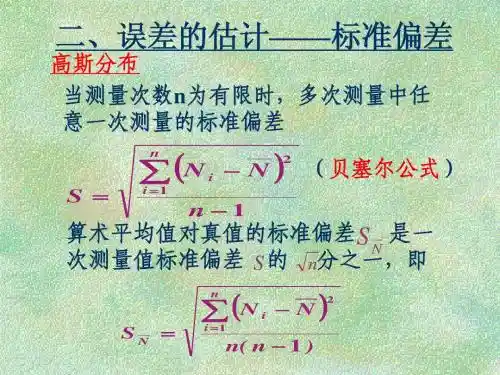 二、误差的估计——标准偏差
高斯分布
当测量次数n为有限时，多次测量中任
意一次测量的标准偏差
S = \sqrt{\frac{\sum_{i=1}^{n}(N_i - \overline{N})^2}{n-1}} （贝塞尔公式）
算术平均值对真值的标准偏差S_{\overline{N}}是一
次测量值标准偏差 S 的 \sqrt{n}分之一，即
S_{\overline{N}} = \sqrt{\frac{\sum_{i=1}^{n}(N_i - \overline{N})^2}{n(n-1)}}